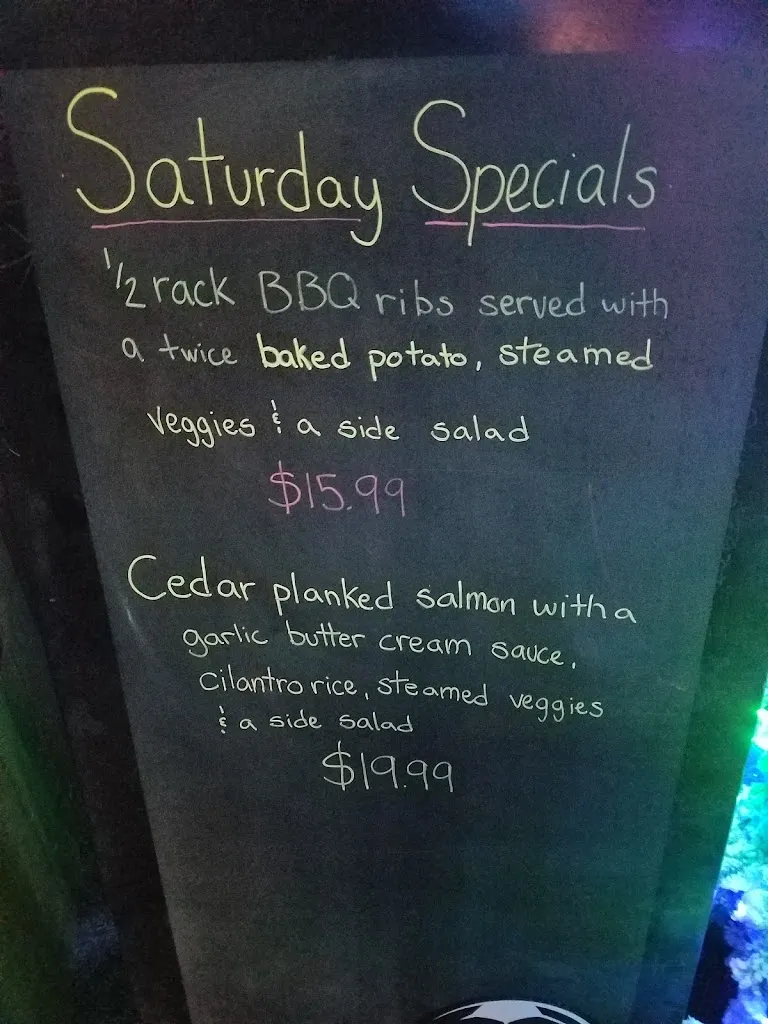 Saturday Specials
1/2 rack BBQ ribs served with
a twice baked potato, steamed
veggies & a side salad
$15.99
Cedar planked salmon with a
garlic butter cream sauce,
cilantro rice, steamed veggies
& a side salad
$19.99